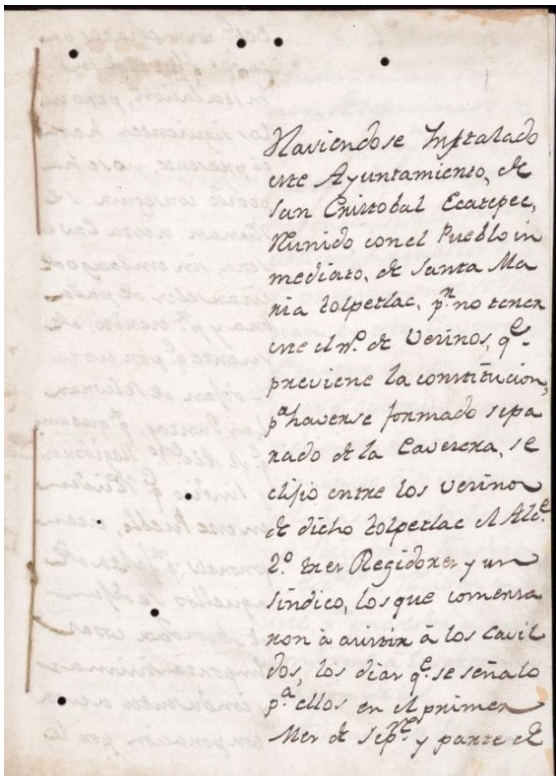 Haviendose Instalado
este Ayuntamiento, de
San Cristobal Ecatepec,
Runido con el Pueblo in
mediato, de Santa Ma
ria tolpetlac, pr. no tener
este el no. de Vecinos, qe.
previene la constitucion,
pa. haverse formado sepa
rado de la Cavecera, se
elijio entre los vecinos
de dicho tolpetlac el Alce.
2o. tres Regidores y un
síndico, los que comensa
ron à asistir à los Cavil
dos, los dias qe. se señalo
pa. ellos en el primer
Mes de Sepre. y parte de